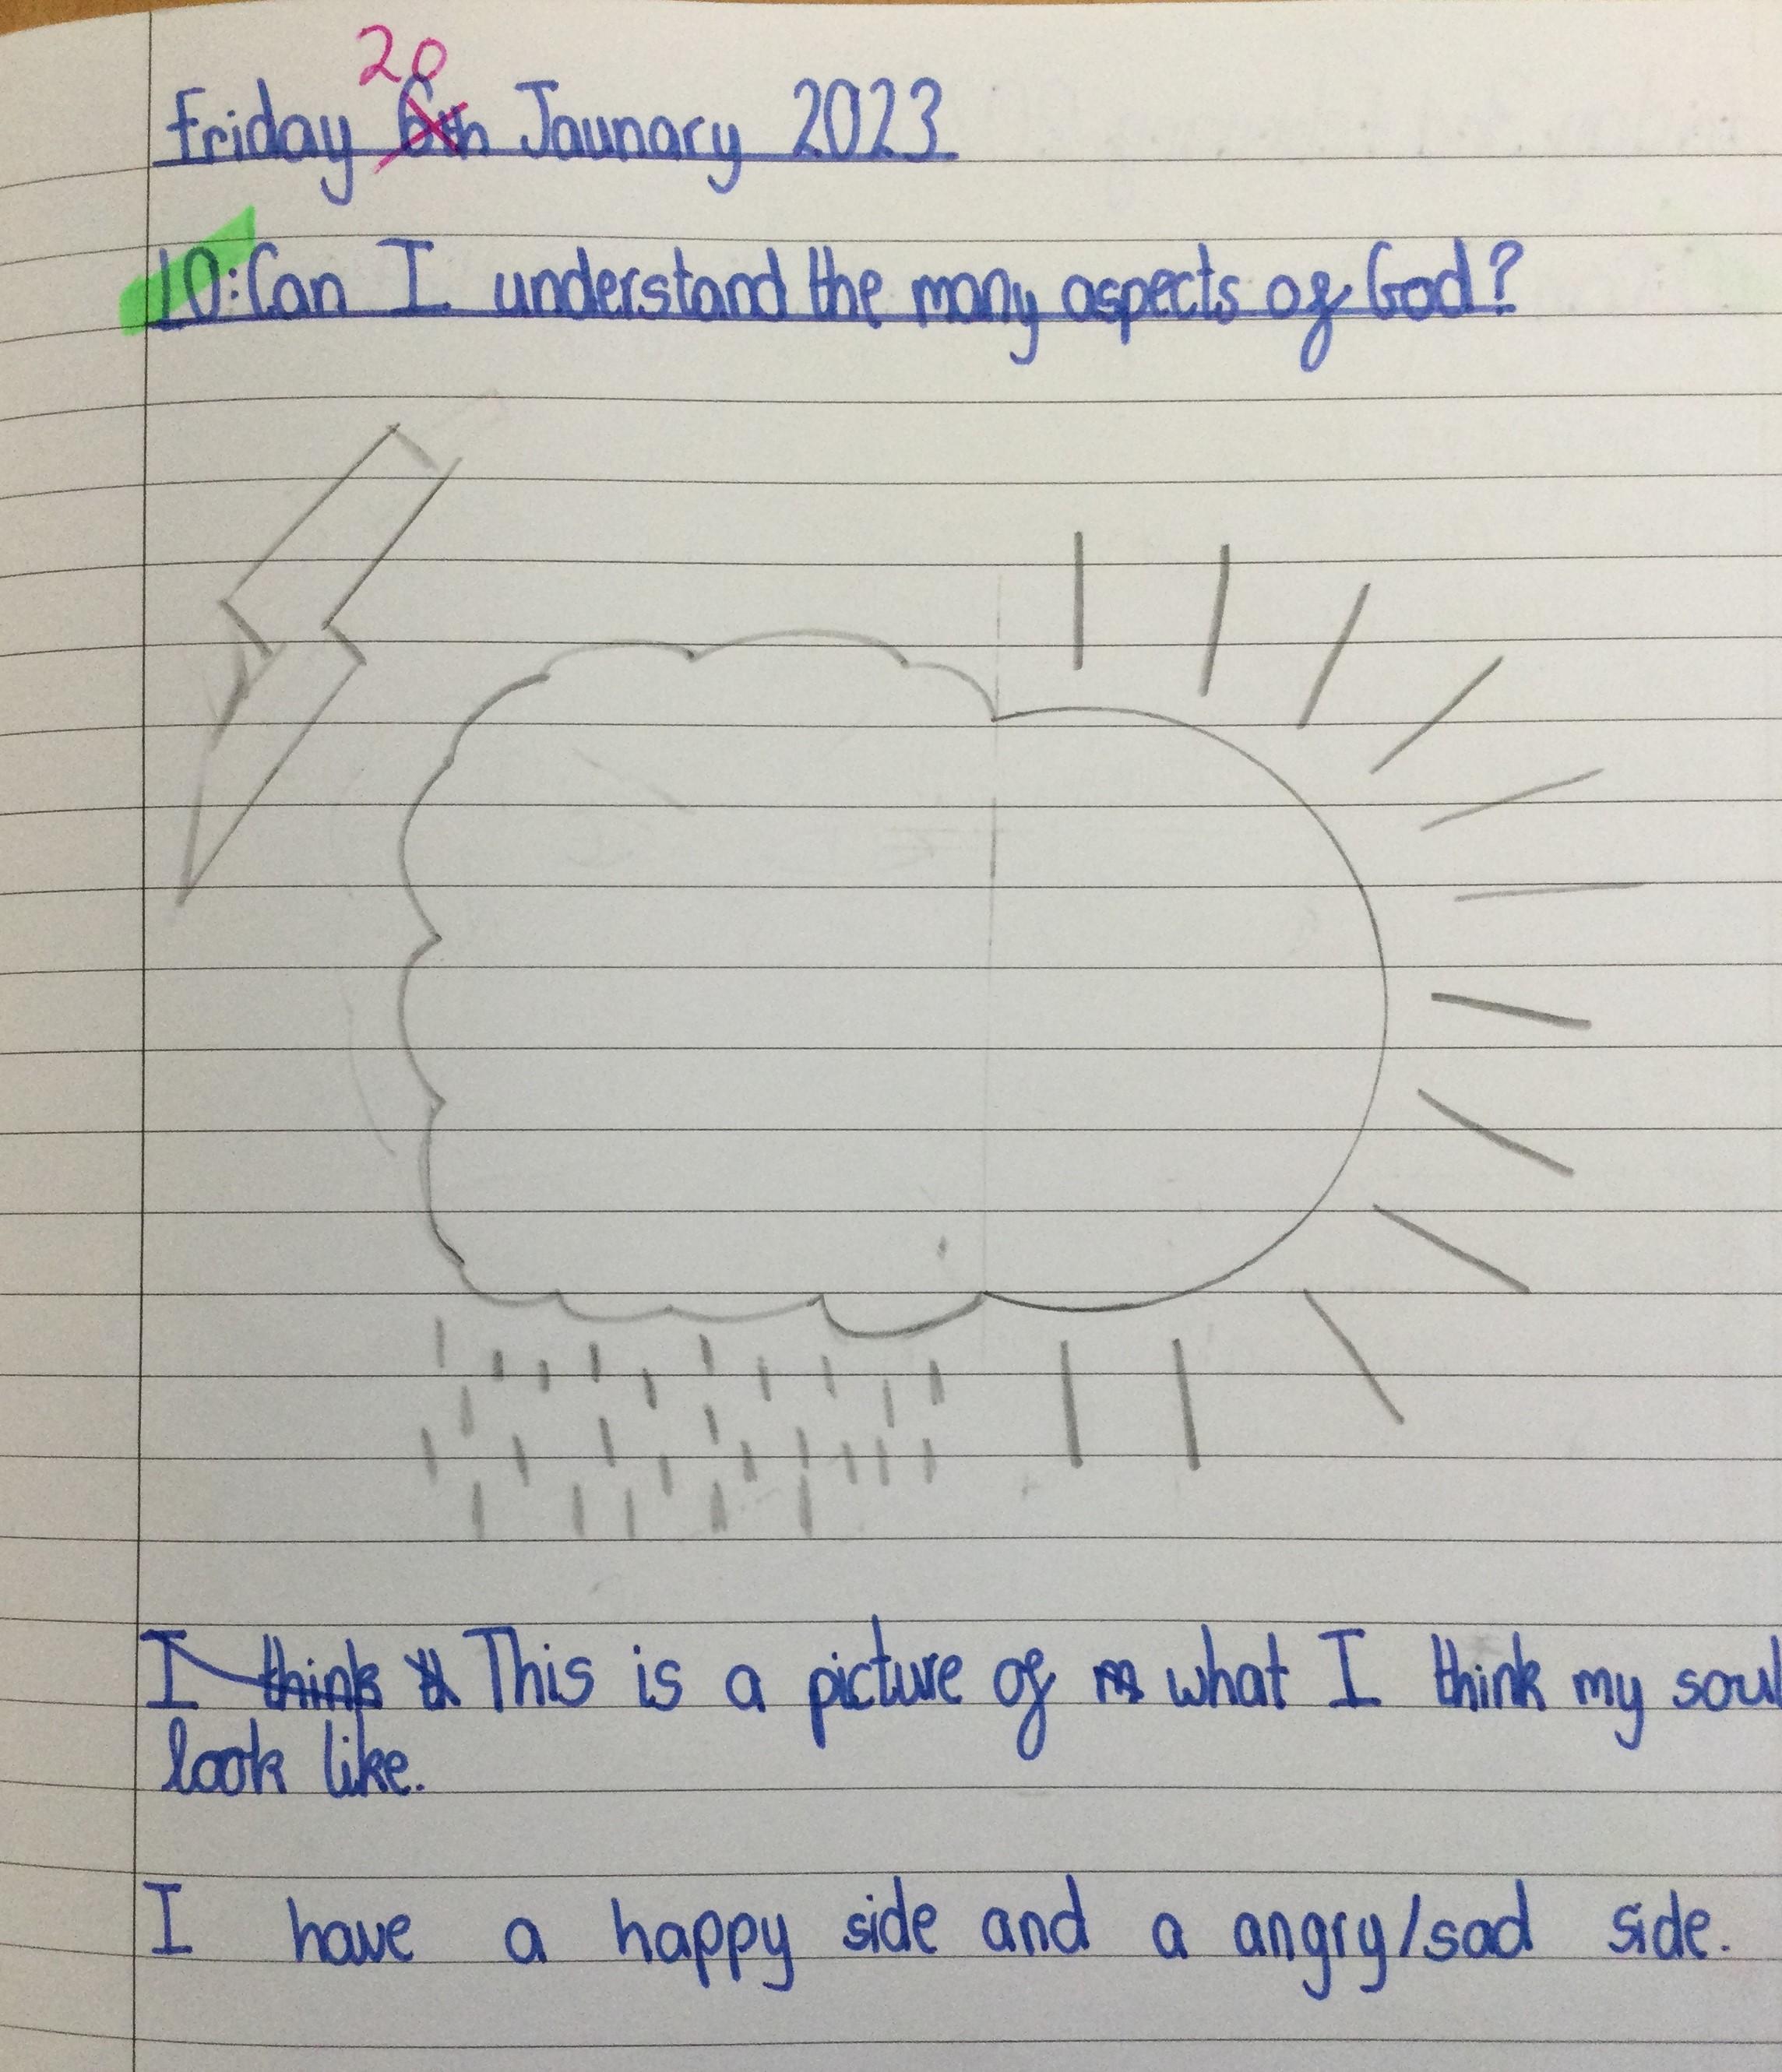 20
Friday 6th Jaunary 2023
LO: Can I understand the many aspects of God?
I think th This is a picture of m what I think my soul
look like.
I have a happy side and a angry/sad side.